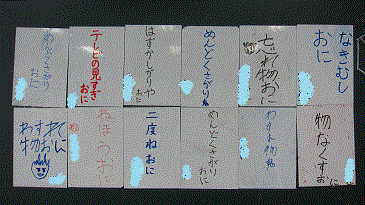 なきむし
おに
忘れ物おに
めんどくさがり鬼
はずかしがりや
おに
テレビの見すぎ
おに
めんどくさがり
おに
物なくすおに
わすれ物鬼
めんどくさがり
おに
二度ねおに
ねぼうおに
わすれ
物おに